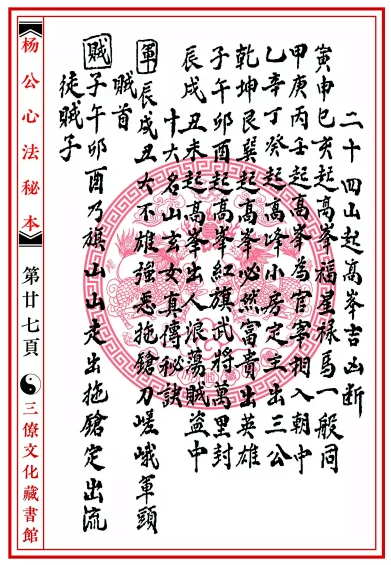 二十四山起高峯吉凶断
寅申巳亥起高峯福星禄馬一般同
甲庚丙壬起高峯為官宰相入朝中
乙辛丁癸起高峰小房定主出三公
乾坤艮巽起高峯必然富貴出英雄
子午卯酉起高峯紅旗武將萬里封
辰戌丑未起高峯出人浪蕩賊盜中
十六名山玄女真傳秘訣
軍辰戌丑女不雄強悪拖鎗刀嵯峨軍頭
賊首
賊子午卯酉乃旗山山走出拖鎗定出流
徒賊子
杨公心法秘本
第廿七頁
三僚文化藏書館